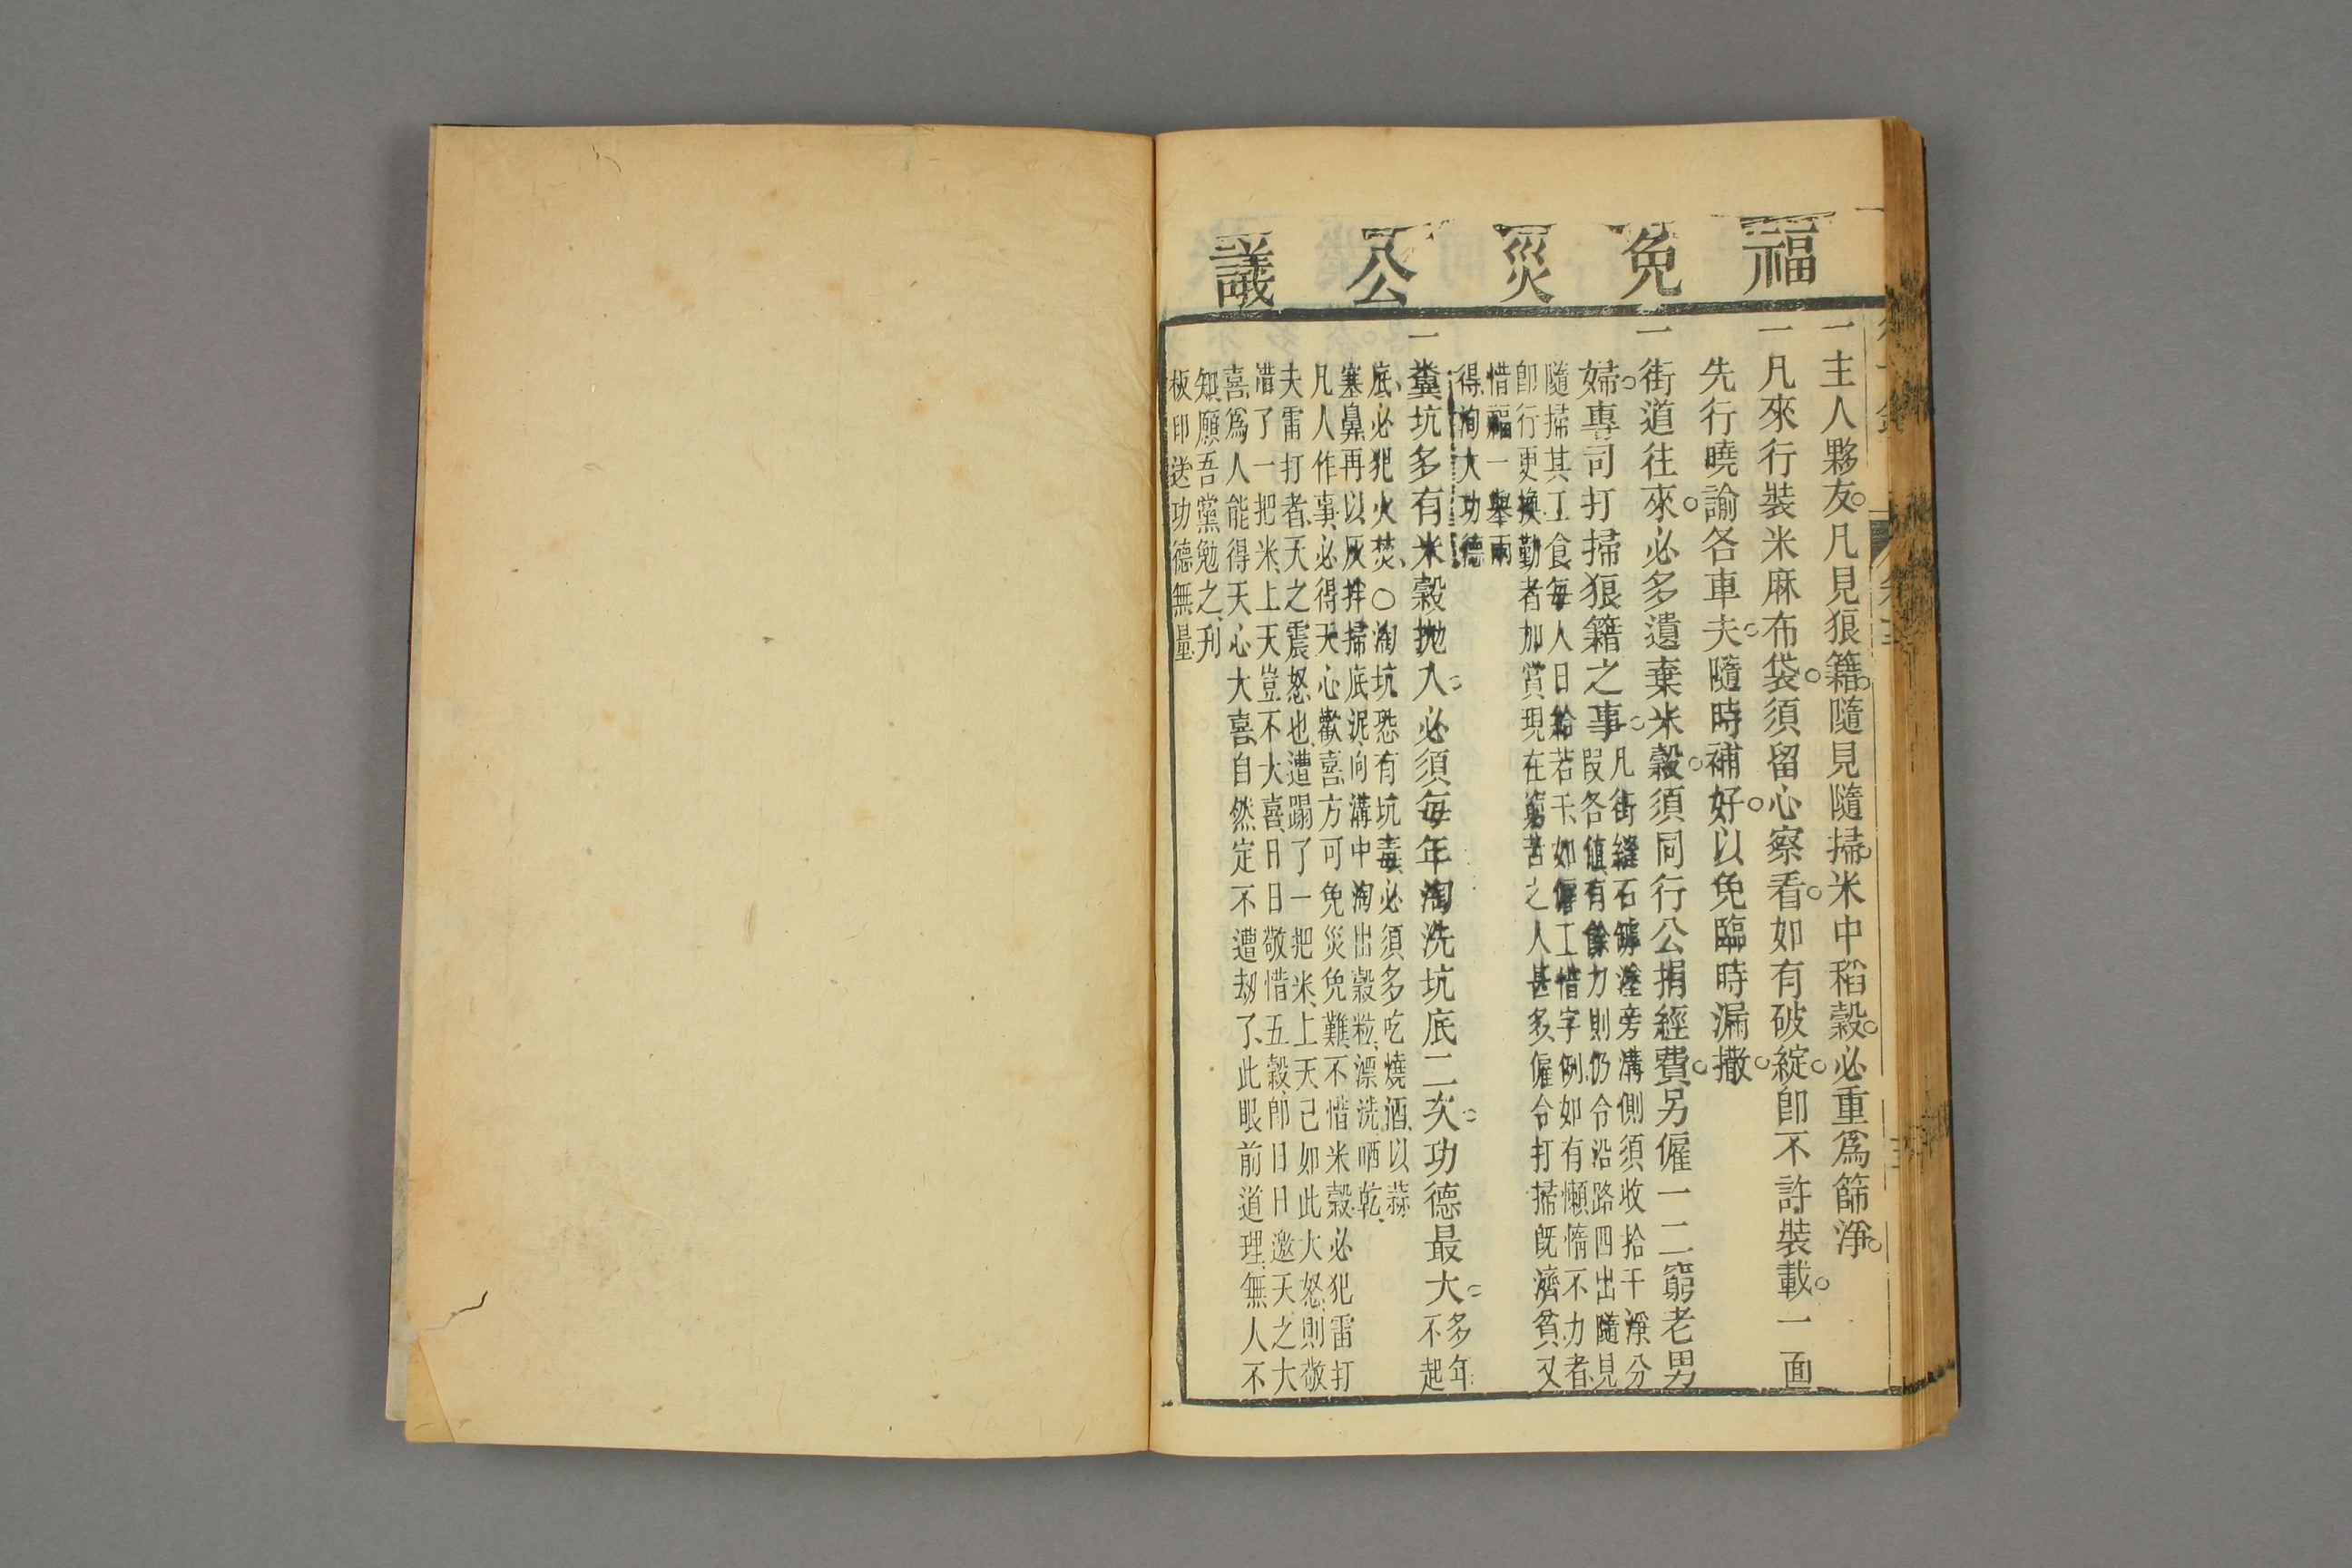 福免災公議
一主人夥友。凡見狼籍。隨見隨掃。米中稻穀。必重爲篩淨。
一凡來行裝米麻布袋。須留心察看。如有破綻。卽不許裝載。一面
先行曉諭各車夫。隨時補好。以免臨時漏撒。
一街道往來。必多遺棄米穀。須同行公捐經費。另僱一二窮老男
婦。專司打掃狼籍之事。凡街縫石罅溝側須收拾干淨分
段各值有餘力則仍令沿路四出隨見
隨掃其工食每人日給若干如僱工惜字例如有懶惰不力者
卽行更換勤者加賞現在窮苦之人甚多僱令打掃旣濟貧又
惜福一舉兩
得洵大功德
一糞坑多有米穀拋入。必須每年淘洗坑底二次。功德最大。多年
不起
底、必犯火焚、○淘坑恐有坑毒必須多吃燒酒、以蒜
塞鼻、再以灰拌掃底泥、向溝中淘出穀粒、漂洗、晒乾、
凡人作事、必得天心歡喜、方可免災免難、不惜米穀、必犯雷打
夫雷打者、天之震怒也、遭蹋了一把米、上天已如此大怒、則敬
惜了一把米、上天豈不大喜、日日敬惜五穀、卽日日邀天之大
喜、爲人能得天心大喜、自然定不遭劫了、此眼前道理、無人不
知、願吾黨勉之、刋
板印送功德無量